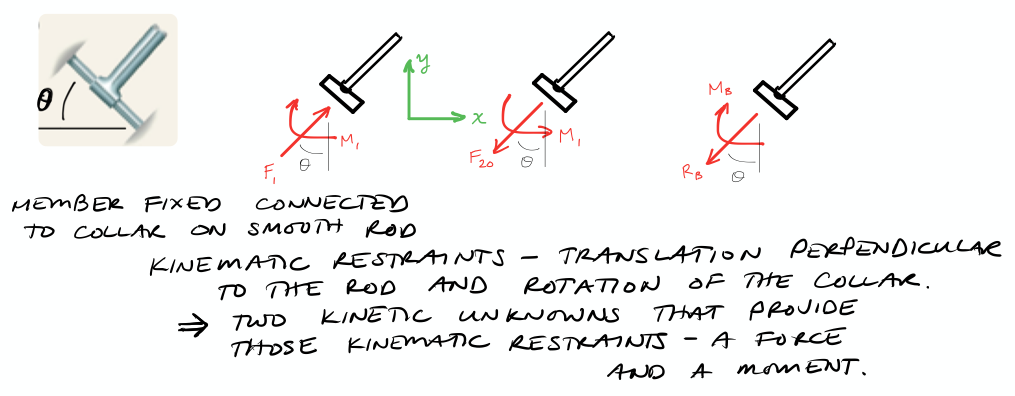 θ
y
x
F₁
M₁
θ
F₂₀
M₁
θ
M_B
R_B
θ
MEMBER FIXED CONNECTED
TO COLLAR ON SMOOTH ROD
KINEMATIC RESTRAINTS – TRANSLATION PERPENDICULAR
TO THE ROD AND ROTATION OF THE COLLAR.
⇒ TWO KINETIC UNKNOWNS THAT PROVIDE
THOSE KINEMATIC RESTRAINTS – A FORCE
AND A MOMENT.